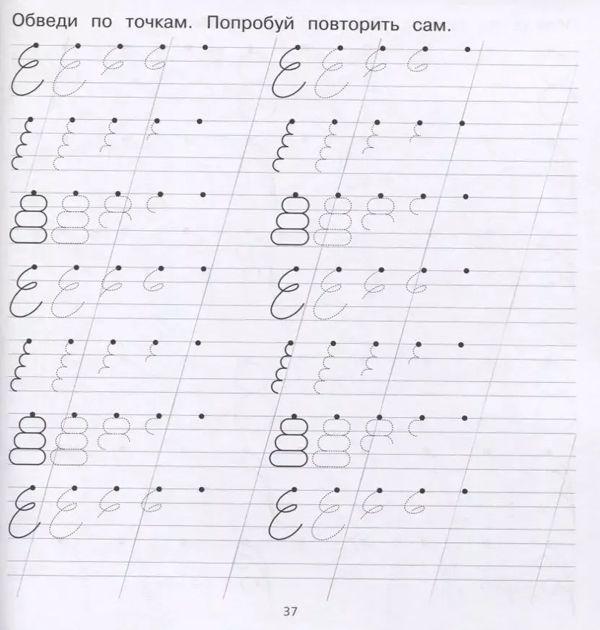 Обведи по точкам. Попробуй повторить сам.
37